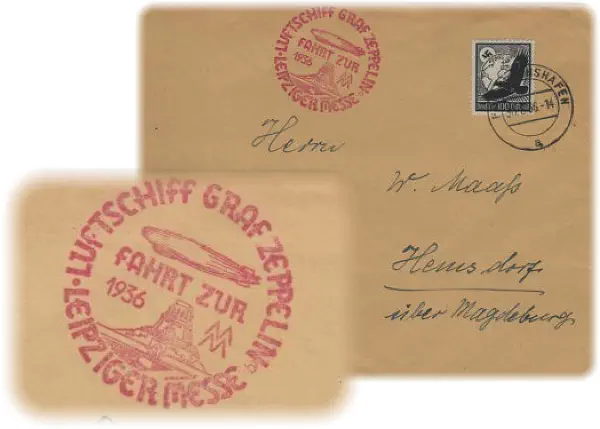 LUFTSCHIFF GRAF ZEPPELIN
FAHRT ZUR
1936
MM
LEIPZIGER MESSE
100
Herrn
W. Maaß
Hemsdorf
über Magdeburg
LUFTSCHIFF GRAF ZEPPELIN
FAHRT ZUR
1936
MM
LEIPZIGER MESSE